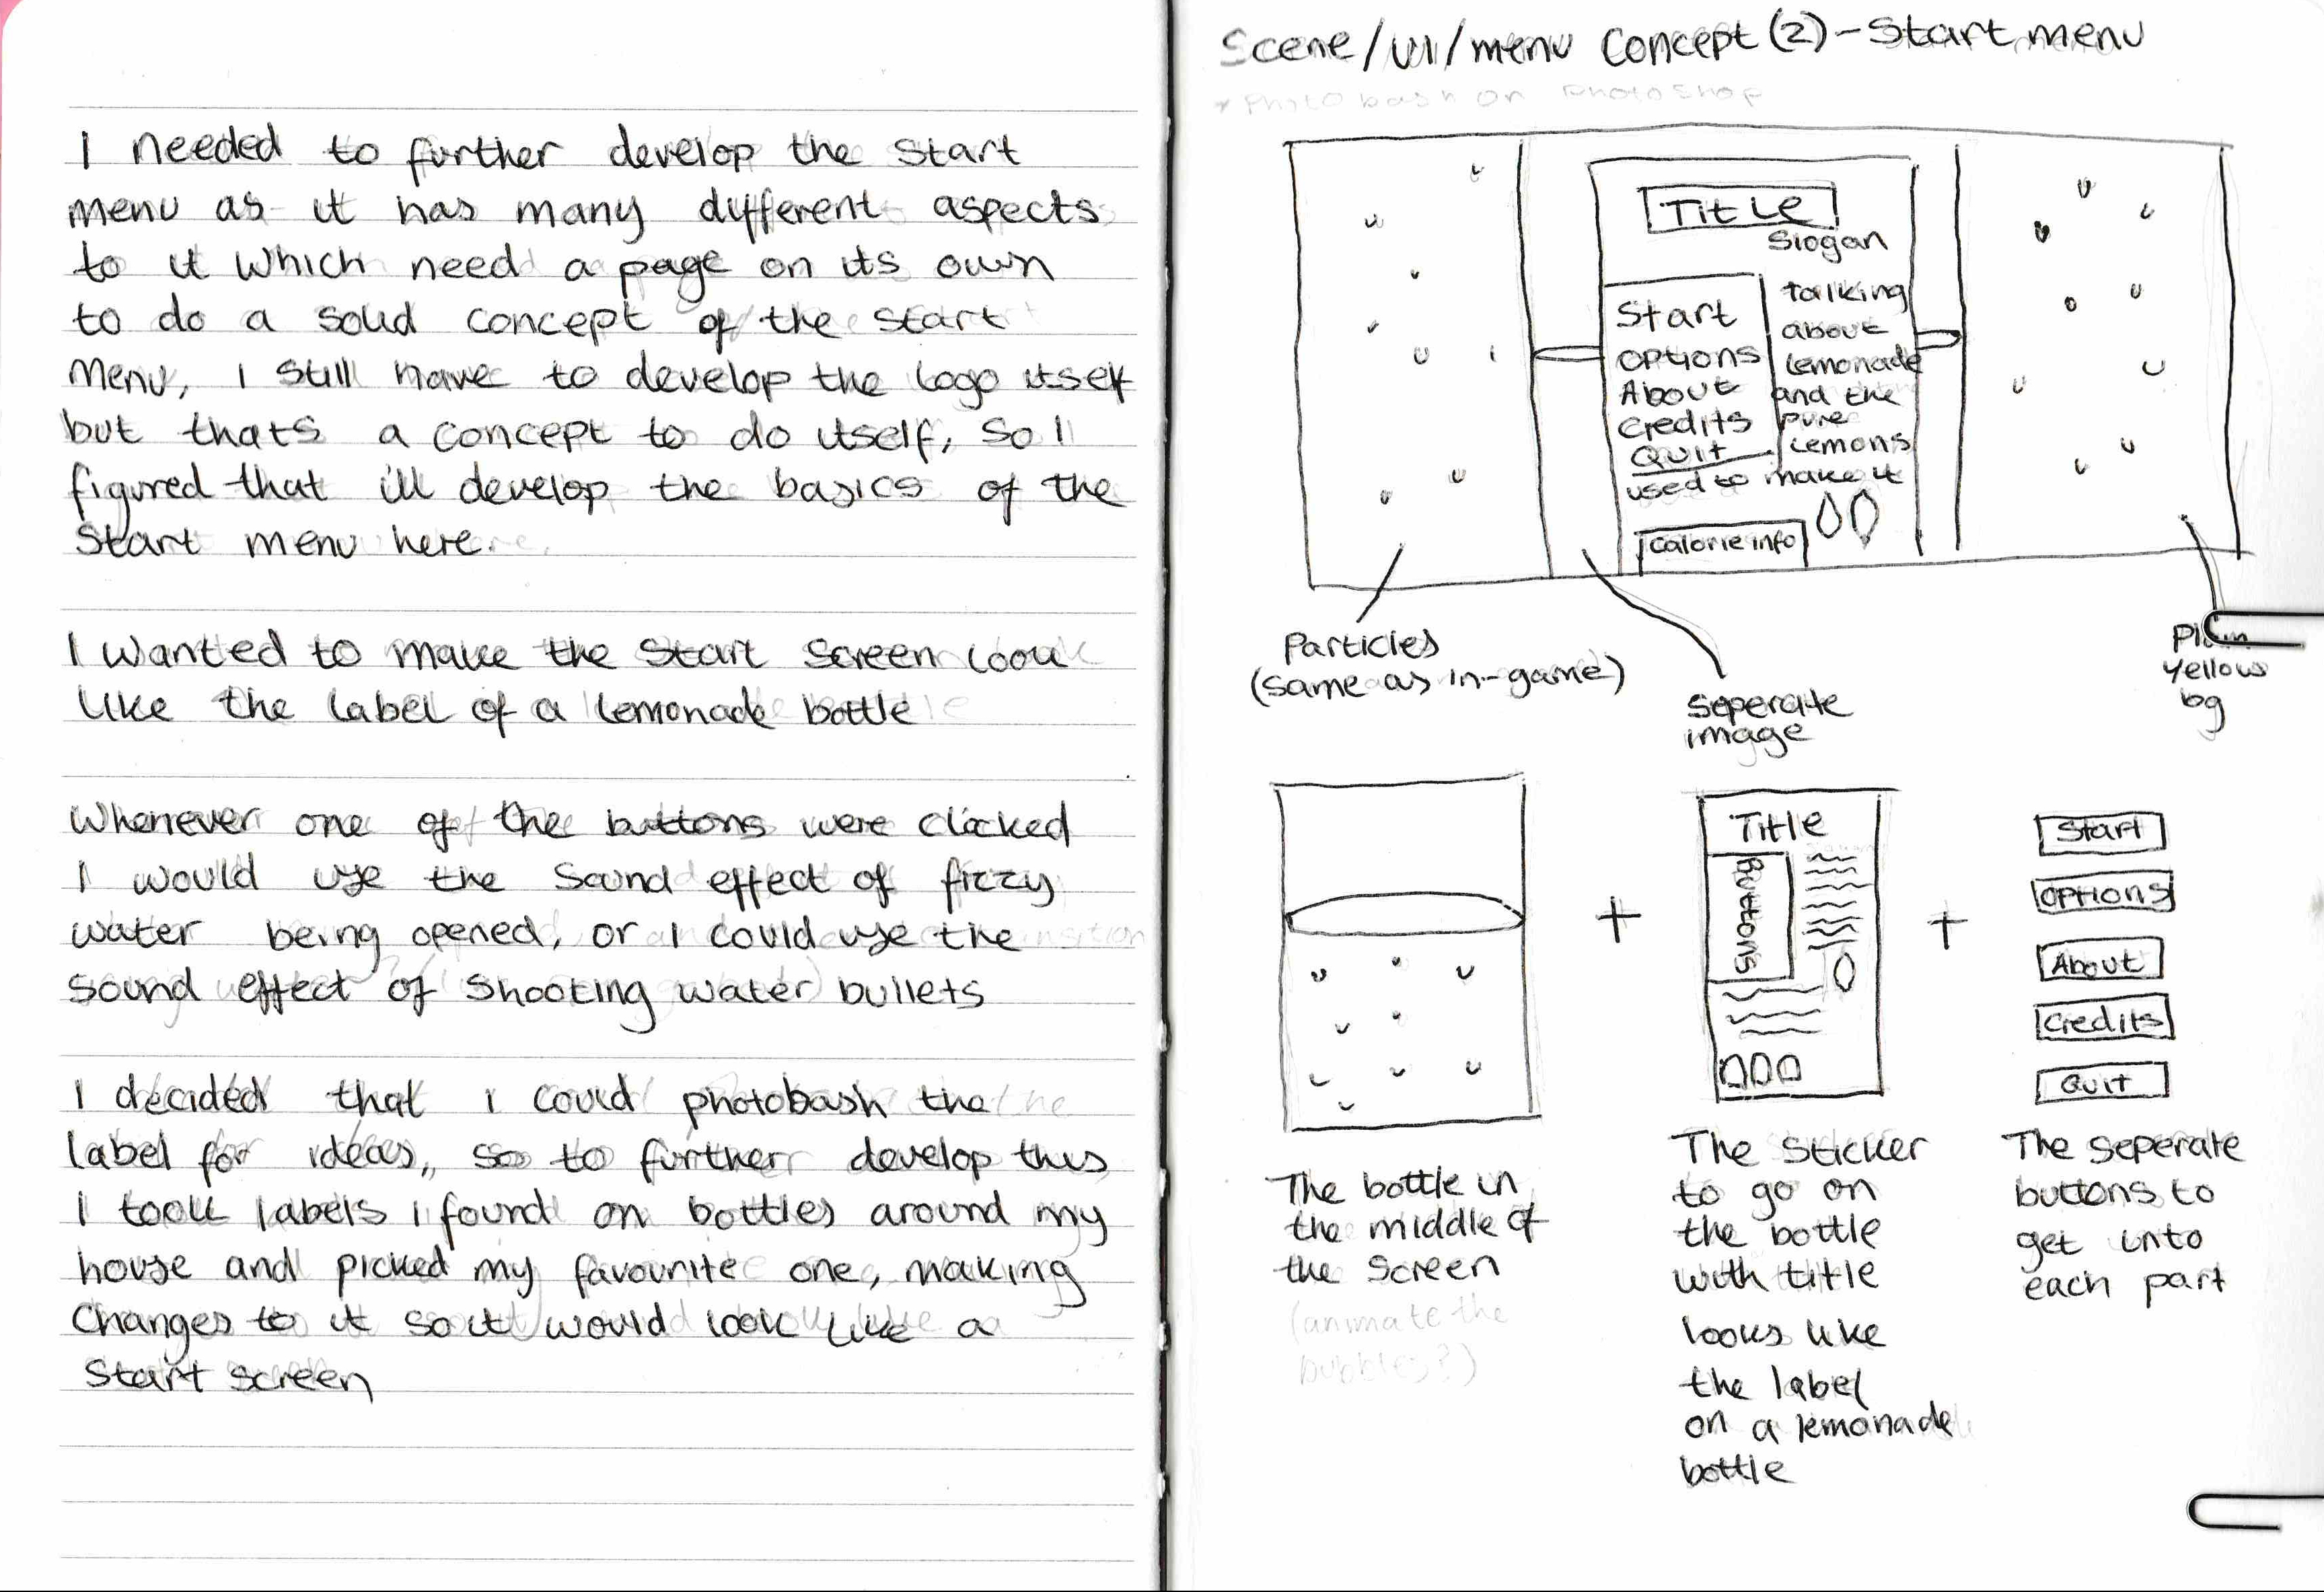 I needed to further develop the start
menu as it has many different aspects
to it which need a page on its own
to do a solid concept of the start
menu, I still have to develop the logo itself
but thats a concept to do itself, so I
figured that ill develop the basics of the
start menu here.
I wanted to make the start screen look
like the label of a lemonade bottle
Whenever one of the buttons were clicked
I would use the sound effect of fizzy
water being opened, or I could use the
sound effect of shooting water bullets
I decided that i could photobash the
label for ideas, so to further develop this
I took labels i found on bottles around my
house and picked my favourite one, making
changes to it so it would look like a
start screen
Scene/UI/menu concept (2) - Start menu
* Photobash on photoshop
Title
Slogan
Start
Options
About
Credits
Quit
talking
about
lemonade
and the
pure
lemons
used to make it
calorie info
Particles
(same as in-game)
seperate
image
Plain
yellow
bg
Title
Buttons
+
+
Start
Options
About
Credits
Quit
The bottle in
the middle of
the screen
(animate the
bubbles?)
The sticker
to go on
the bottle
with title
looks like
the label
on a lemonade
bottle
The seperate
buttons to
get into
each part